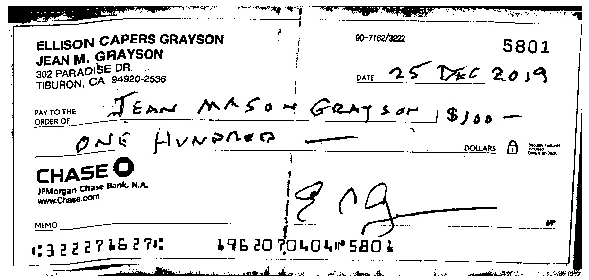 ELLISON CAPERS GRAYSON
JEAN M. GRAYSON
302 PARADISE DR.
TIBURON, CA 94920-2536
90-7162/3222
5801
DATE 25 DEC 2019
PAY TO THE ORDER OF JEAN MASON GRAYSON $100 —
ONE HUNDRED — DOLLARS
CHASE
JPMorgan Chase Bank, N.A.
www.Chase.com
MEMO
⑆322271627⑆ 1962070404⑈5801